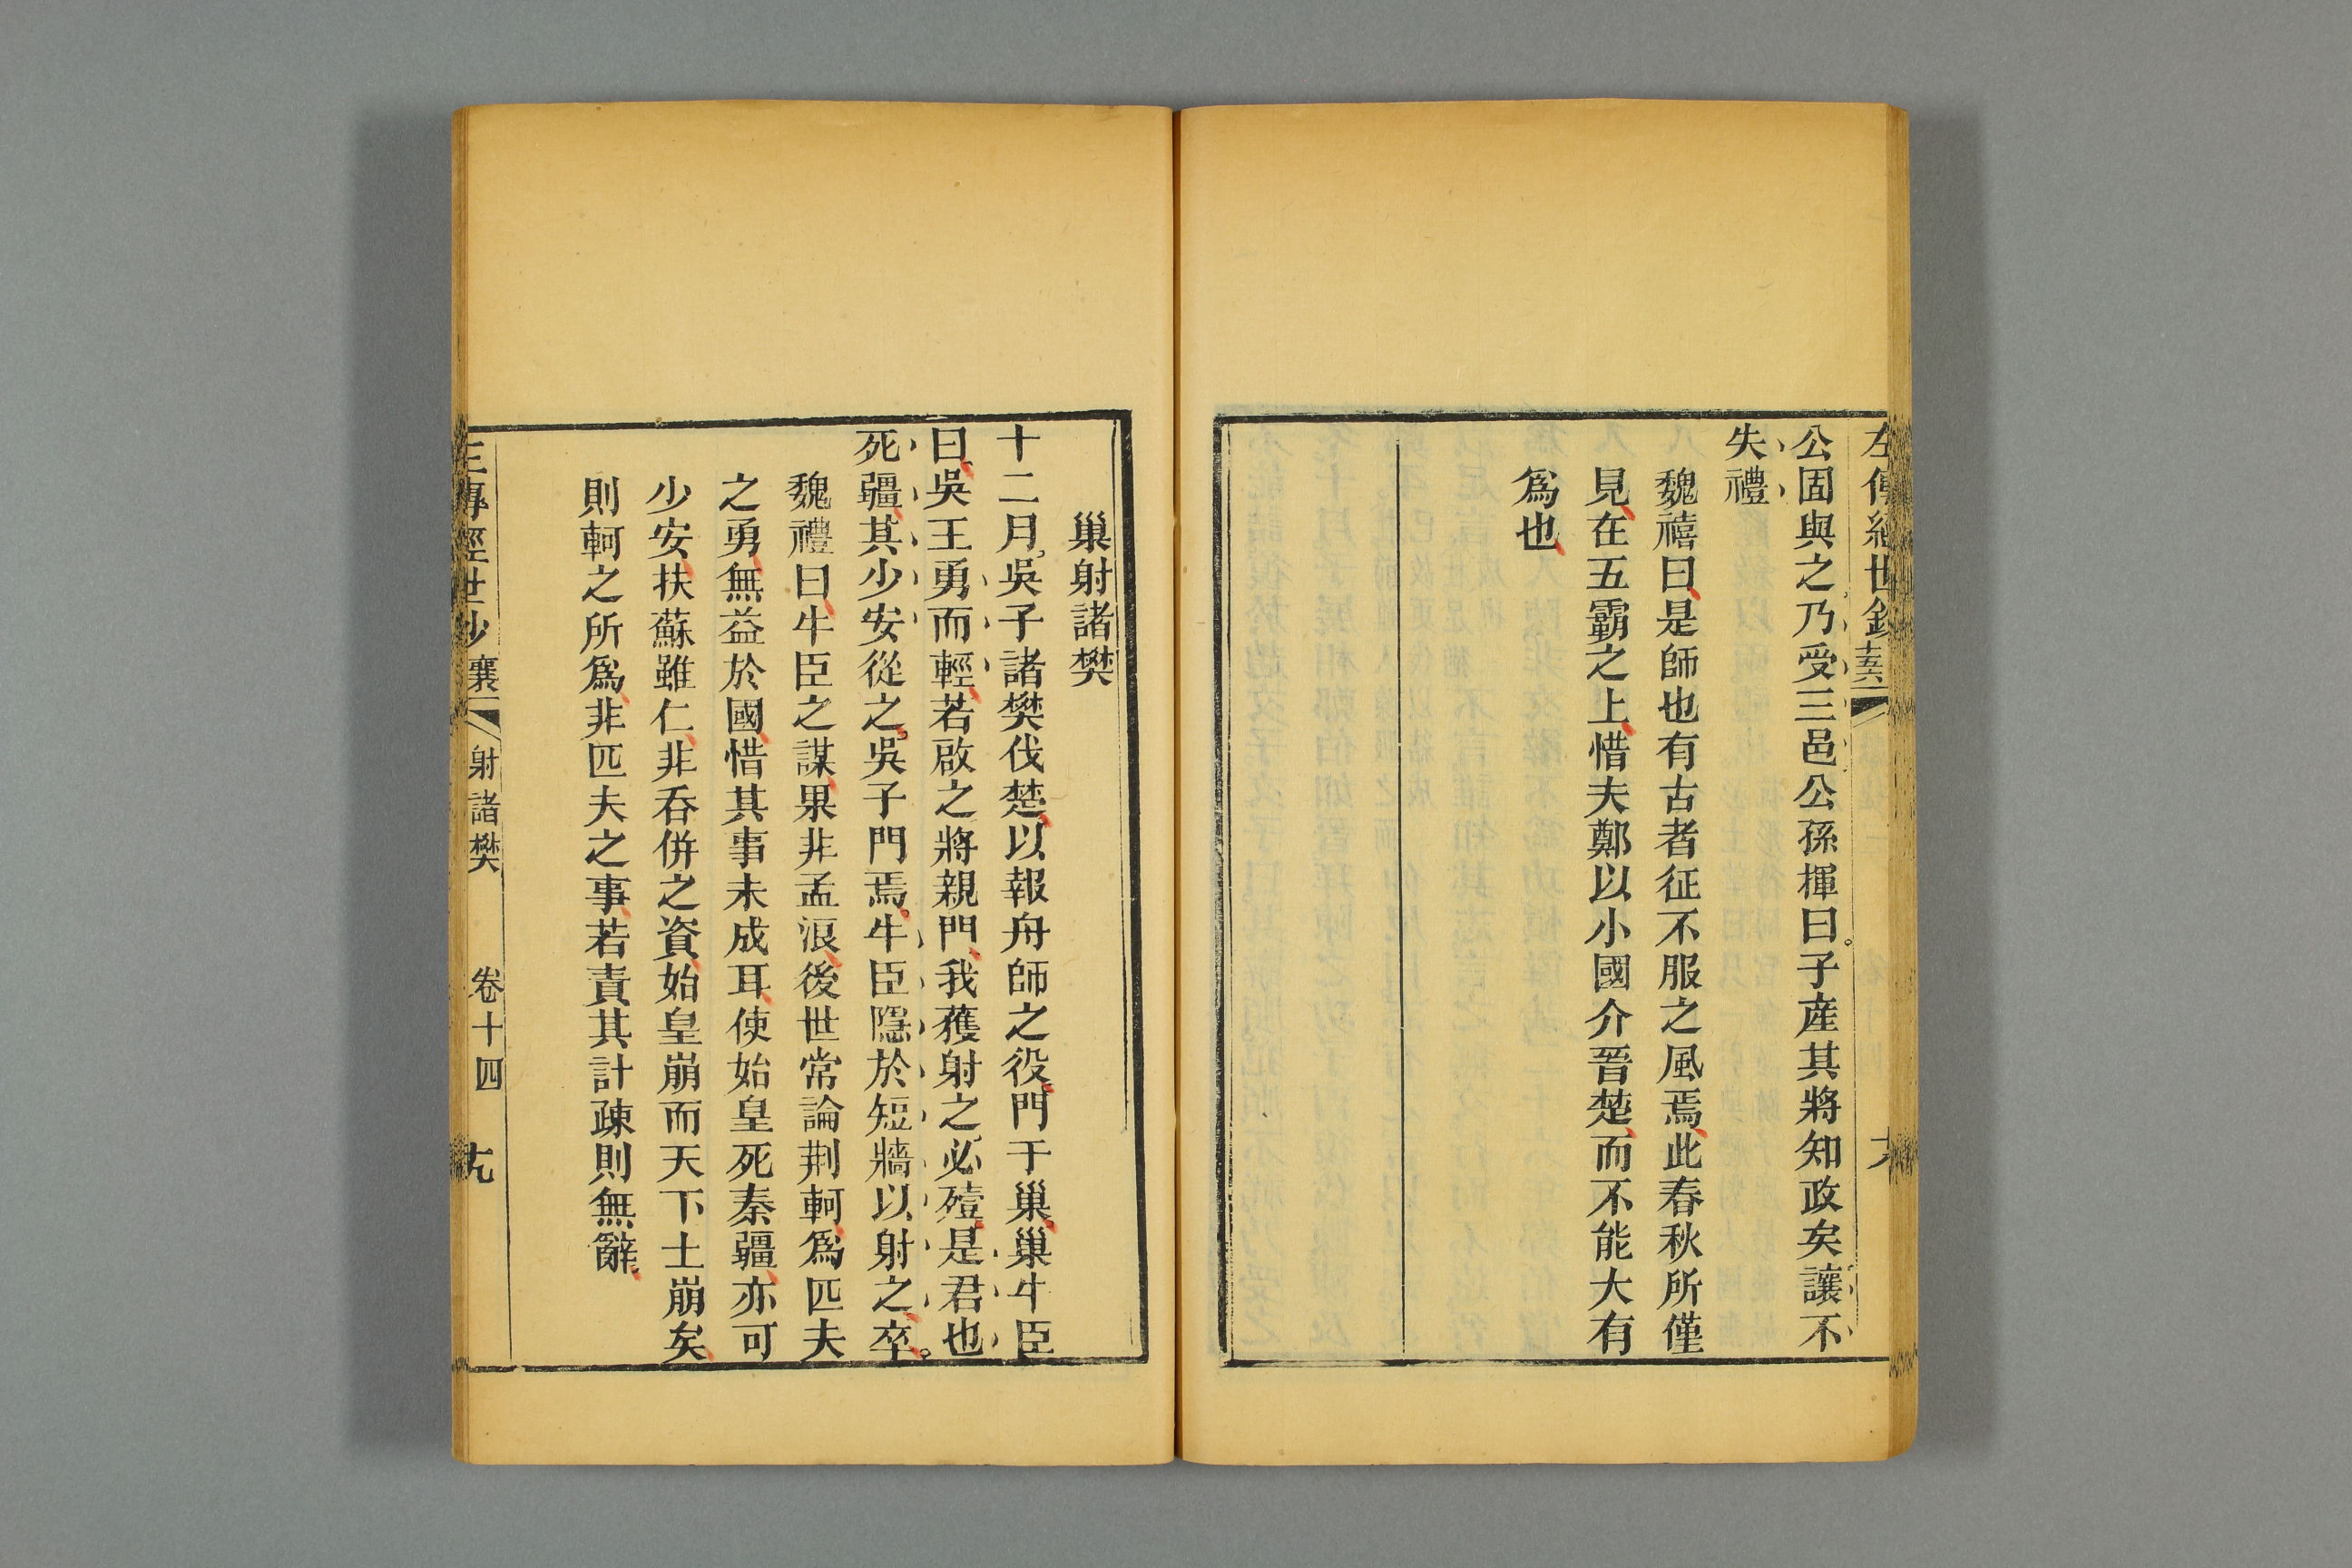 左傳經世鈔
公固與之乃受三邑公孫揮曰子產其將知政矣讓不
失禮
魏禧曰是師也有古者征不服之風焉此春秋所僅
見在五霸之上惜夫鄭以小國介晉楚而不能大有
爲也
巢射諸樊
十二月吳子諸樊伐楚以報舟師之役門于巢巢牛臣
曰吳王勇而輕若啟之將親門我獲射之必殪是君也
死疆其少安從之吳子門焉牛臣隱於短牆以射之卒
魏禮曰牛臣之謀果非孟浪後世常論荆軻爲匹夫
之勇無益於國惜其事未成耳使始皇死秦疆亦可
少安扶蘇雖仁非吞併之資始皇崩而天下土崩矣
則軻之所爲非匹夫之事若責其計疎則無辭
左傳經世鈔 襄 射諸樊 卷十四 十九